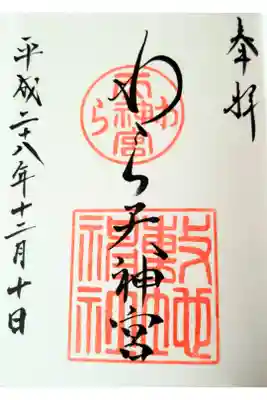 奉拝
わら天神宮
平成二十八年十二月十日
わら天神宮
敷地神社